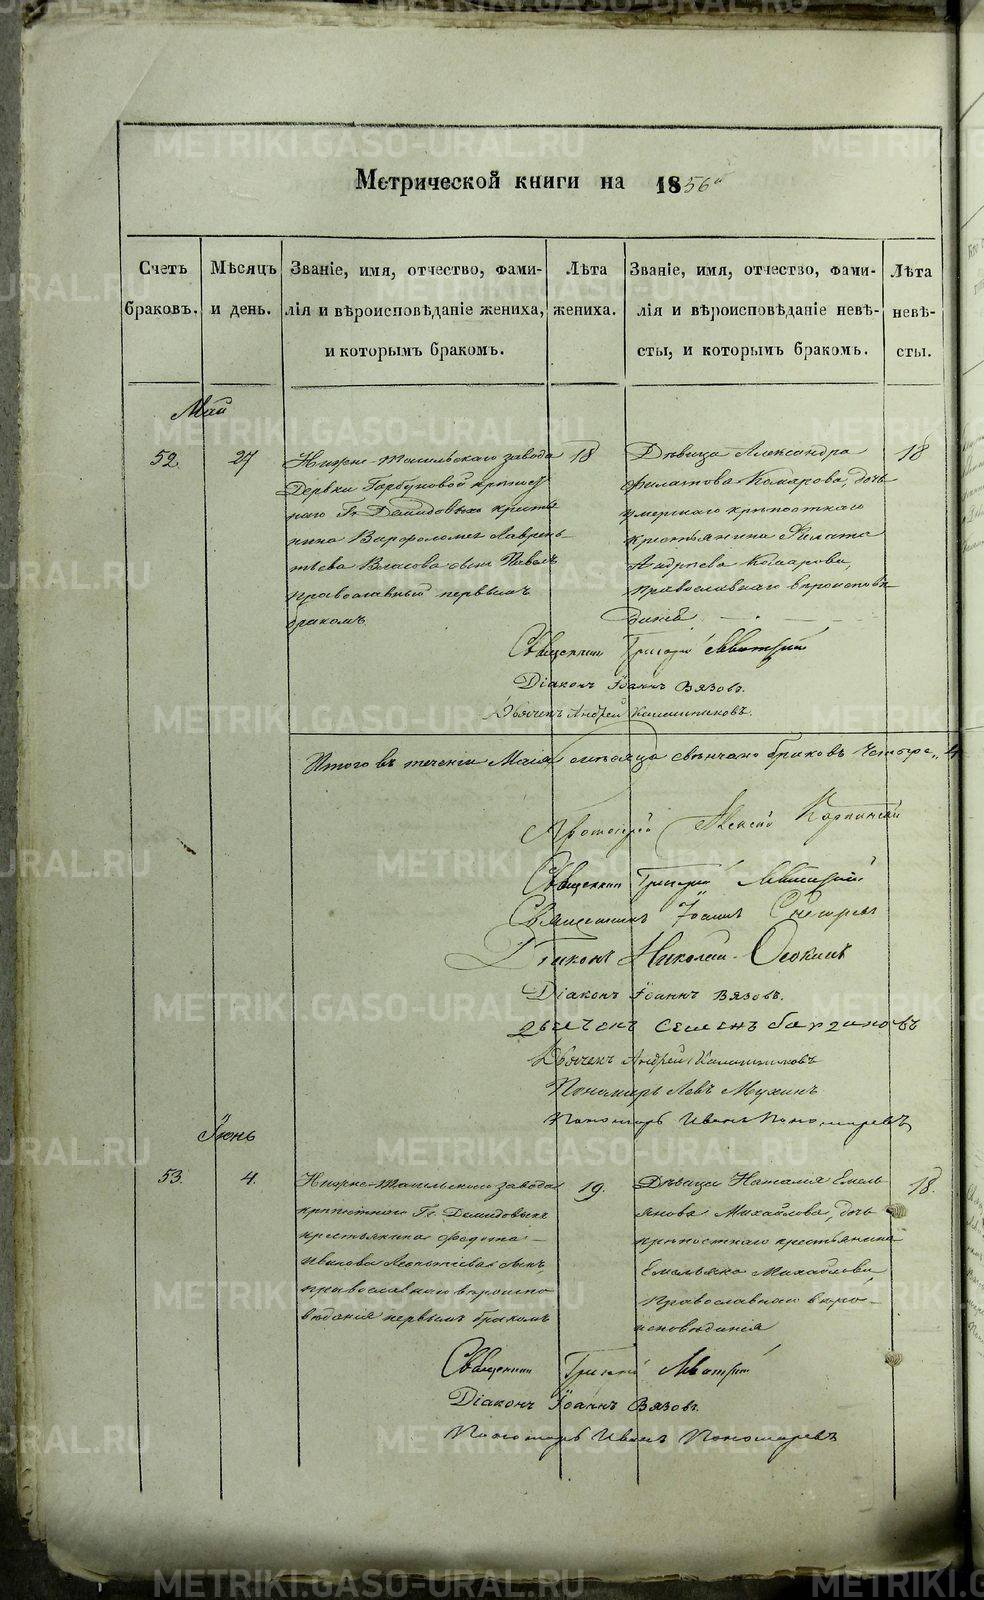 Метрической книги на 1856й
Счетъ браковъ.
Мѣсяцъ и день.
Званіе, имя, отчество, фами-
лія и вѣроисповѣданіе жениха,
и которымъ бракомъ.
Лѣта жениха.
Званіе, имя, отчество, фами-
лія и вѣроисповѣданіе невѣ-
сты, и которымъ бракомъ.
Лѣта невѣ-
сты.
Май
52.
27
Нижне-Тагильскаго завода
Деревни Горбуновой крѣпост
наго Гг. Демидовыхъ крестья
нина Варфоломея Лаврень-
тьева Власова сынъ Павелъ
православный первымъ
бракомъ
18
Дѣвица Александра
Филатова Комарова, дочь
умершаго крѣпостнаго
крестьянина Филата
Андреева Комарова,
православнаго вѣроисповѣ
данія
18
Священник Григорій
Діаконъ Іоаннъ Вязовъ.
Дьячекъ Андрей Калашниковъ.
Итого въ теченіи Маія мѣсяца свѣнчано браковъ Четыре,, 4
Протоіерей Алексій Карпинскій
Священник Григорій
Священникъ Іоаннъ
Діаконъ Николай Осокинъ
Діаконъ Іоаннъ Вязовъ.
Дьячекъ Семенъ
Дьячекъ Андрей Калашниковъ
Пономарь Левъ Мухинъ
Пономарь Иванъ Пономаревъ
Іюнь
53.
4.
Нижне-Тагильскаго завода
крѣпостнаго Гг. Демидовыхъ
крестьянина Федота
Иванова сынъ,
православнаго вѣроиспо
вѣданія первымъ бракомъ
19.
Дѣвица Наталия Емель
янова Михайлова, дочь
крѣпостнаго крестьянина
Емельяна Михайлова,
Православнаго вѣро-
исповѣданія
18.
Священник Григорій
Діаконъ Іоаннъ Вязовъ.
Пономарь Иванъ Пономаревъ
METRIKI.GASO-URAL.RU